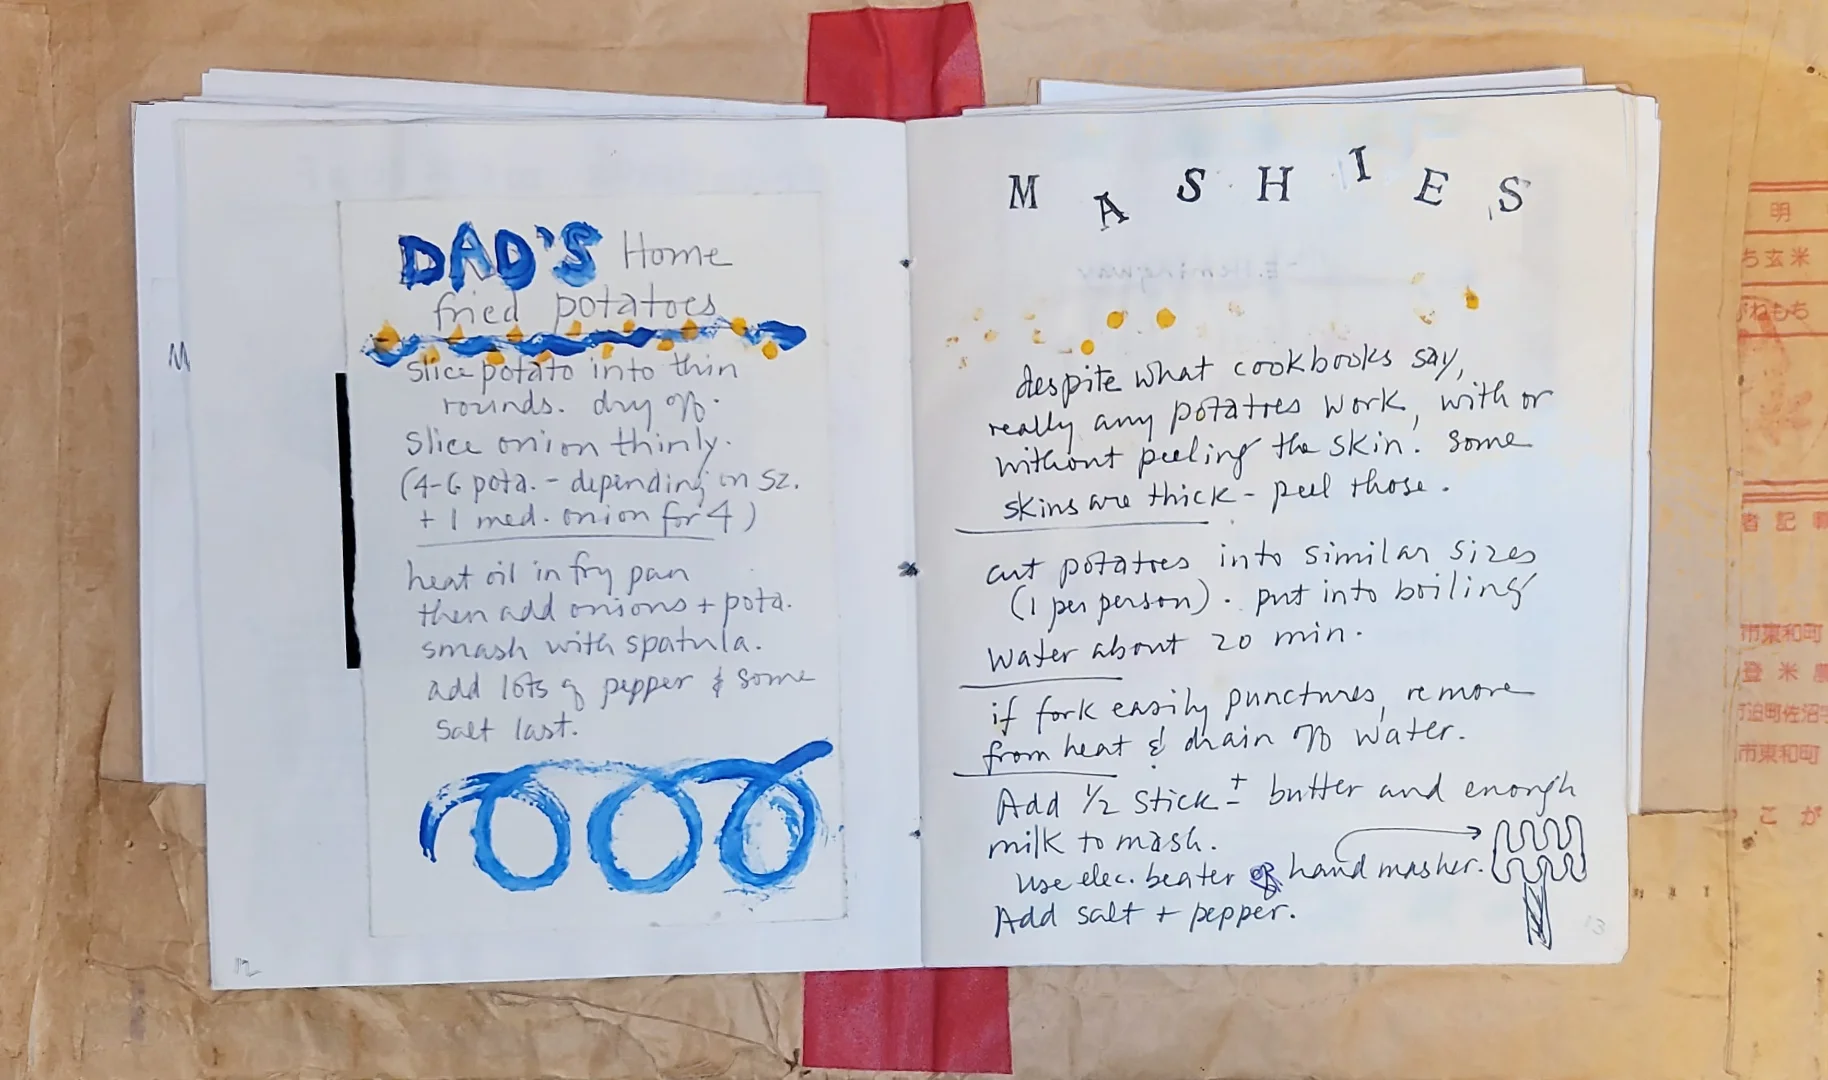 DAD'S Home
fried potatoes
slice potato into thin
rounds. dry off.
slice onion thinly.
(4-6 pota. - depending on sz.
+ 1 med. onion for 4)
heat oil in fry pan
then add onions + pota.
smash with spatula.
add lots of pepper & some
salt last.
12
M
MASHIES
despite what cookbooks say,
really any potatoes work, with or
without peeling the skin. some
skins are thick - peel those.
cut potatoes into similar sizes
(1 per person). put into boiling
water about 20 min.
if fork easily punctures, remove
from heat & drain off water.
Add 1/2 stick ± butter and enough
milk to mash.
Use elec. beater or hand masher.
Add salt + pepper.
13
明
ち玄米
がねもち
者記
市東和町
登米
迫町佐沼字
市東和町
こが